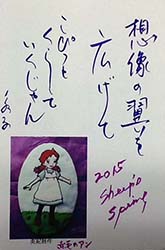 想像の翼を
広げて
こぴっと
くらして
いくじゃん
2015
Sheep's
Spring
赤毛のアン